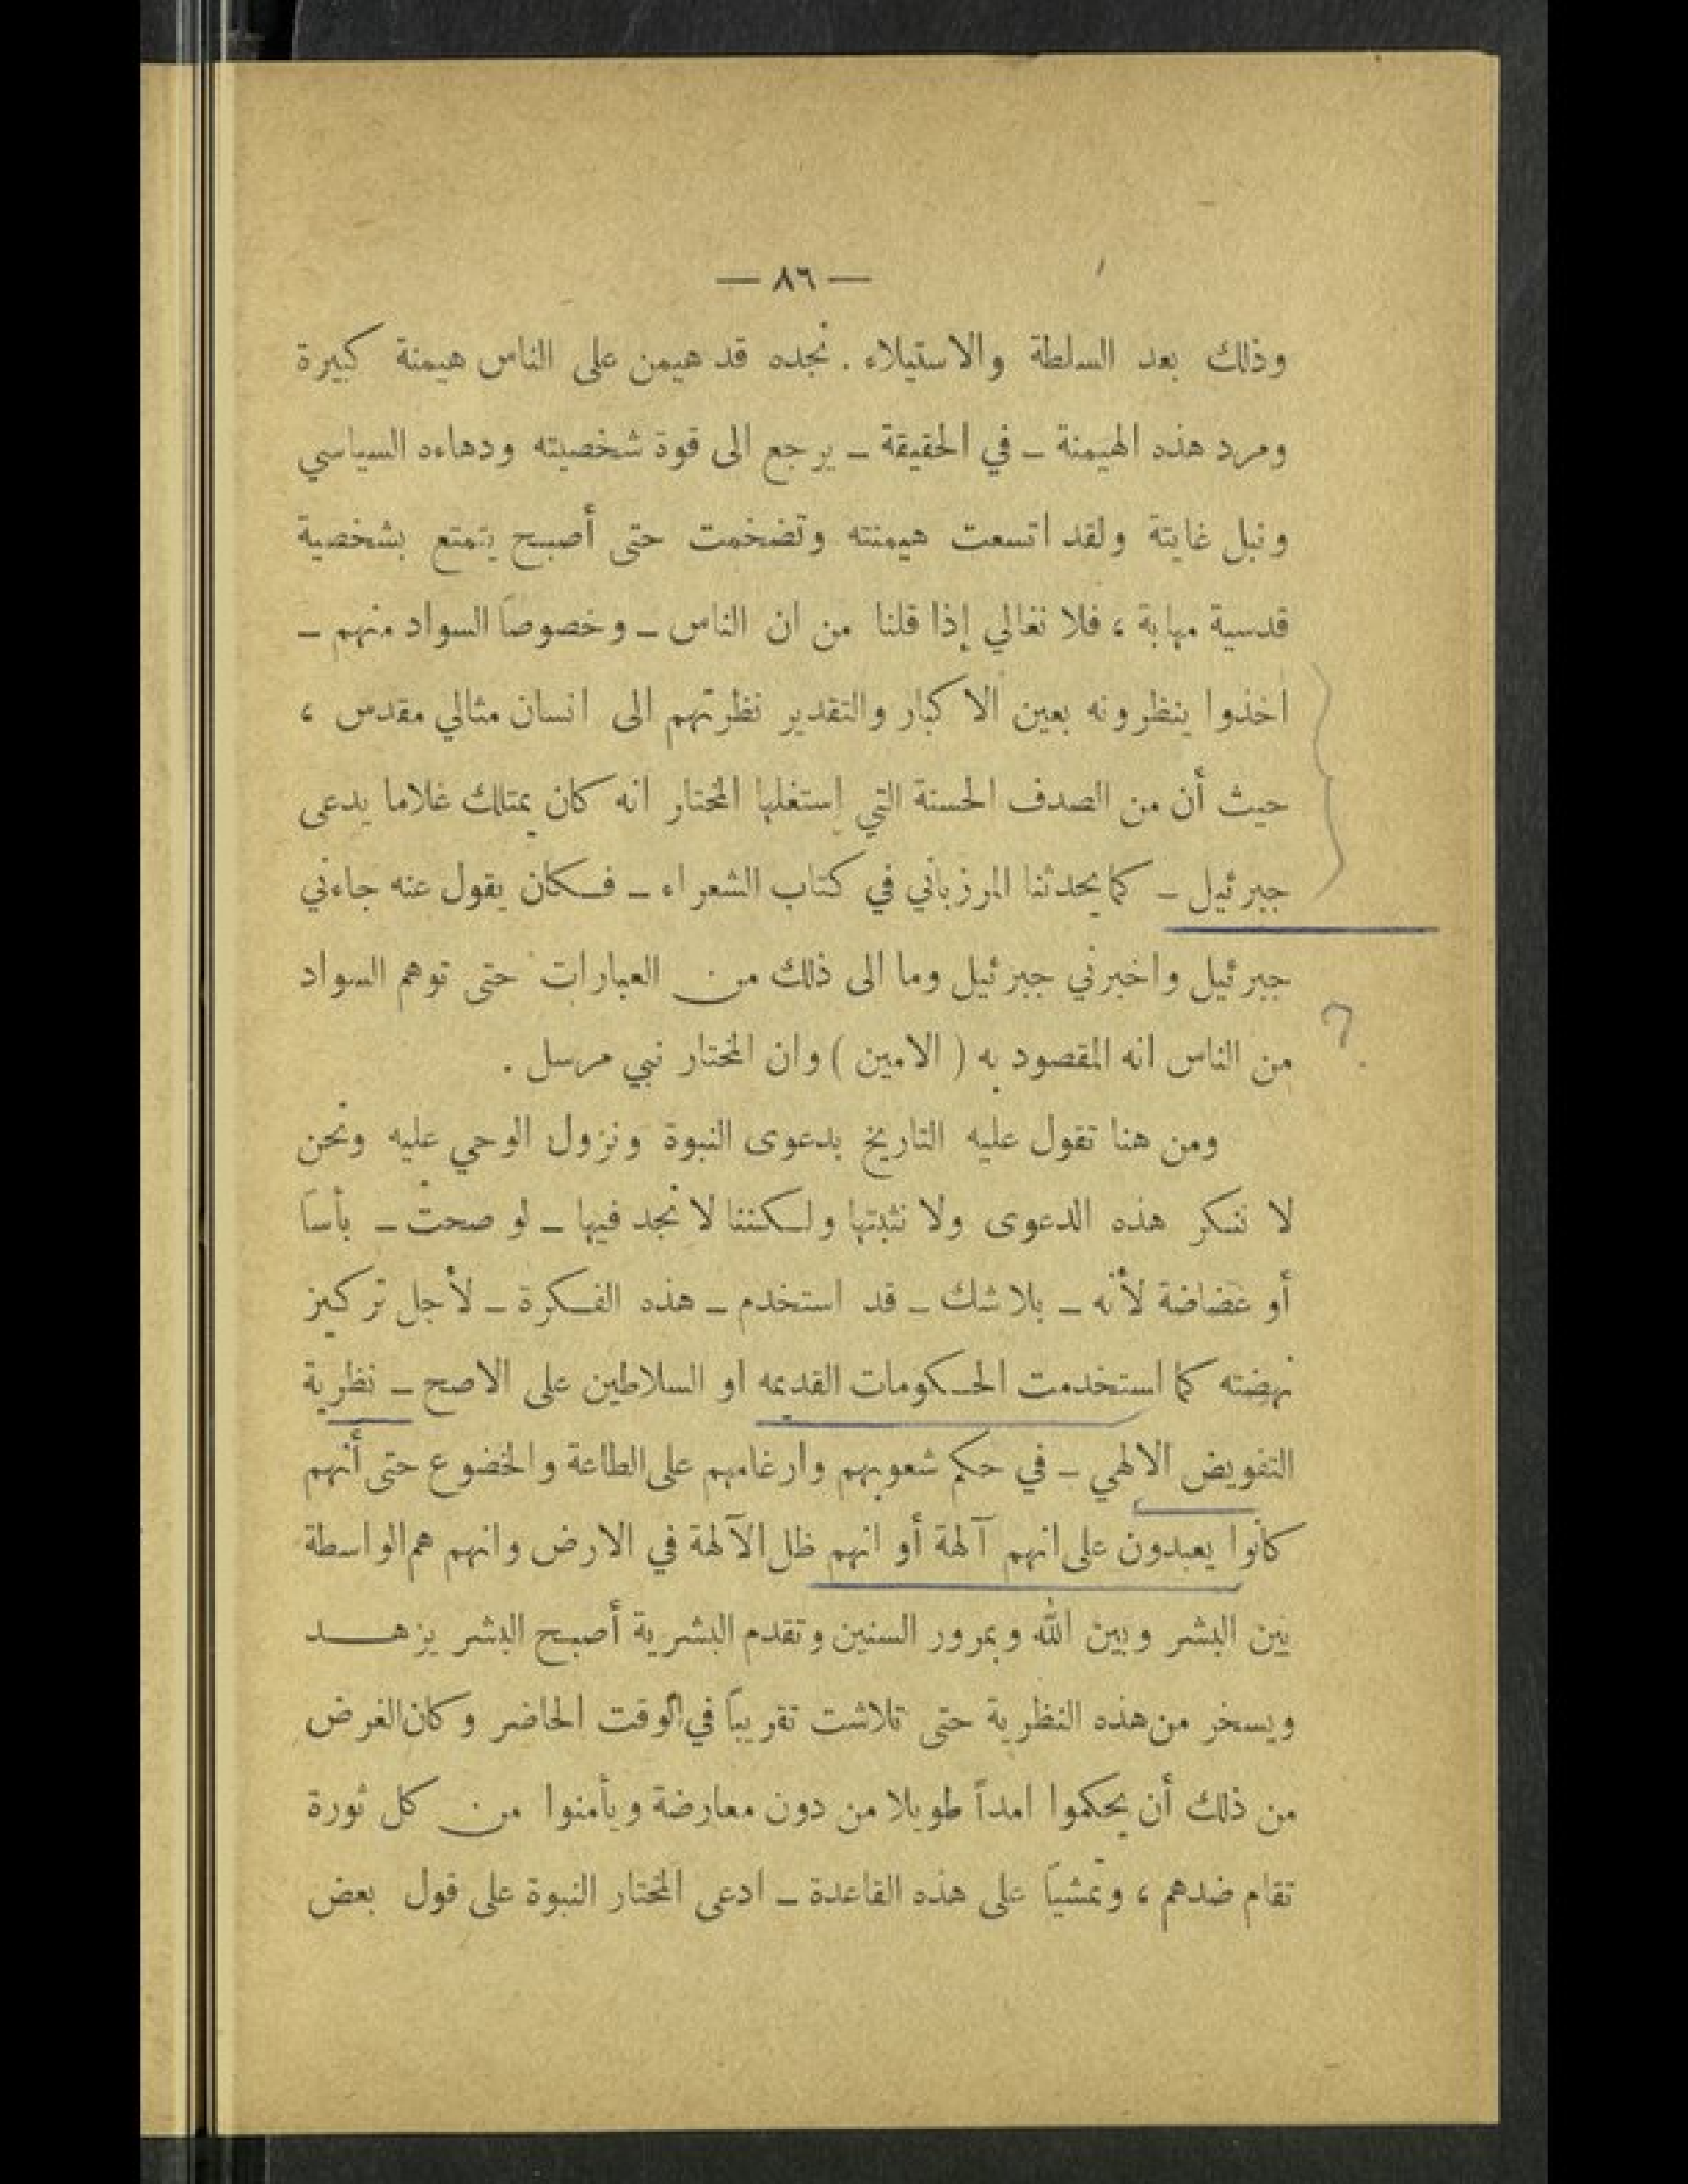 — ٨٦ —
وذلك بعد السلطة والاستيلاء . نجده قد هيمن على الناس هيمنة كبيرة
ومرد هذه الهيمنة ــ في الحقيقة ــ يرجع الى قوة شخصيته ودهاءه السياسي
ونبل غايتة ولقد اتسعت هيمنته وتضخمت حتى أصبح يتمتع بشخصية
قدسية مهابة ، فلا نغالي إذا قلنا من ان الناس ــ وخصوصاً السواد منهم ــ
اخذوا ينظرونه بعين الاكبار والتقدير نظرتهم الى انسان مثالي مقدس ،
حيث أن من الصدف الحسنة التي إستغلها المختار انه كان يمتلك غلاما يدعى
جبرئيل ــ كما يحدثنا المرزباني في كتاب الشعراء ــ فكان يقول عنه جاءني
جبرئيل واخبرني جبرئيل وما الى ذلك من العبارات حتى توهم السواد
من الناس انه المقصود به ( الامين ) وان المختار نبي مرسل . ?
ومن هنا تقول عليه التاريخ بدعوى النبوة ونزول الوحي عليه ونحن
لا ننكر هذه الدعوى ولا نثبتها ولكننا لا نجد فيها ــ لو صحت ــ بأساً
أو غضاضة لأنه ــ بلا شك ــ قد استخدم ــ هذه الفكرة ــ لأجل تركيز
نهضته كما استخدمت الحكومات القديمه او السلاطين على الاصح ــ نظرية
التفويض الالهي ــ في حكم شعوبهم وارغامهم على الطاعة والخضوع حتى أنهم
كانوا يعبدون على انهم آلهة أو انهم ظل الآلهة في الارض وانهم هم الواسطة
بين البشر وبين الله وبمرور السنين وتقدم البشرية أصبح البشر يزهد
ويسخر من هذه النظرية حتى تلاشت تقريباً في الوقت الحاضر وكان الغرض
من ذلك أن يحكموا امداً طويلا من دون معارضة ويأمنوا من كل ثورة
تقام ضدهم ، وتمشياً على هذه القاعدة ــ ادعى المختار النبوة على قول بعض